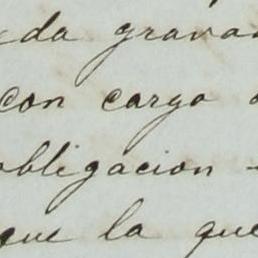 eda grava
con cargo a
obligacion
que la que